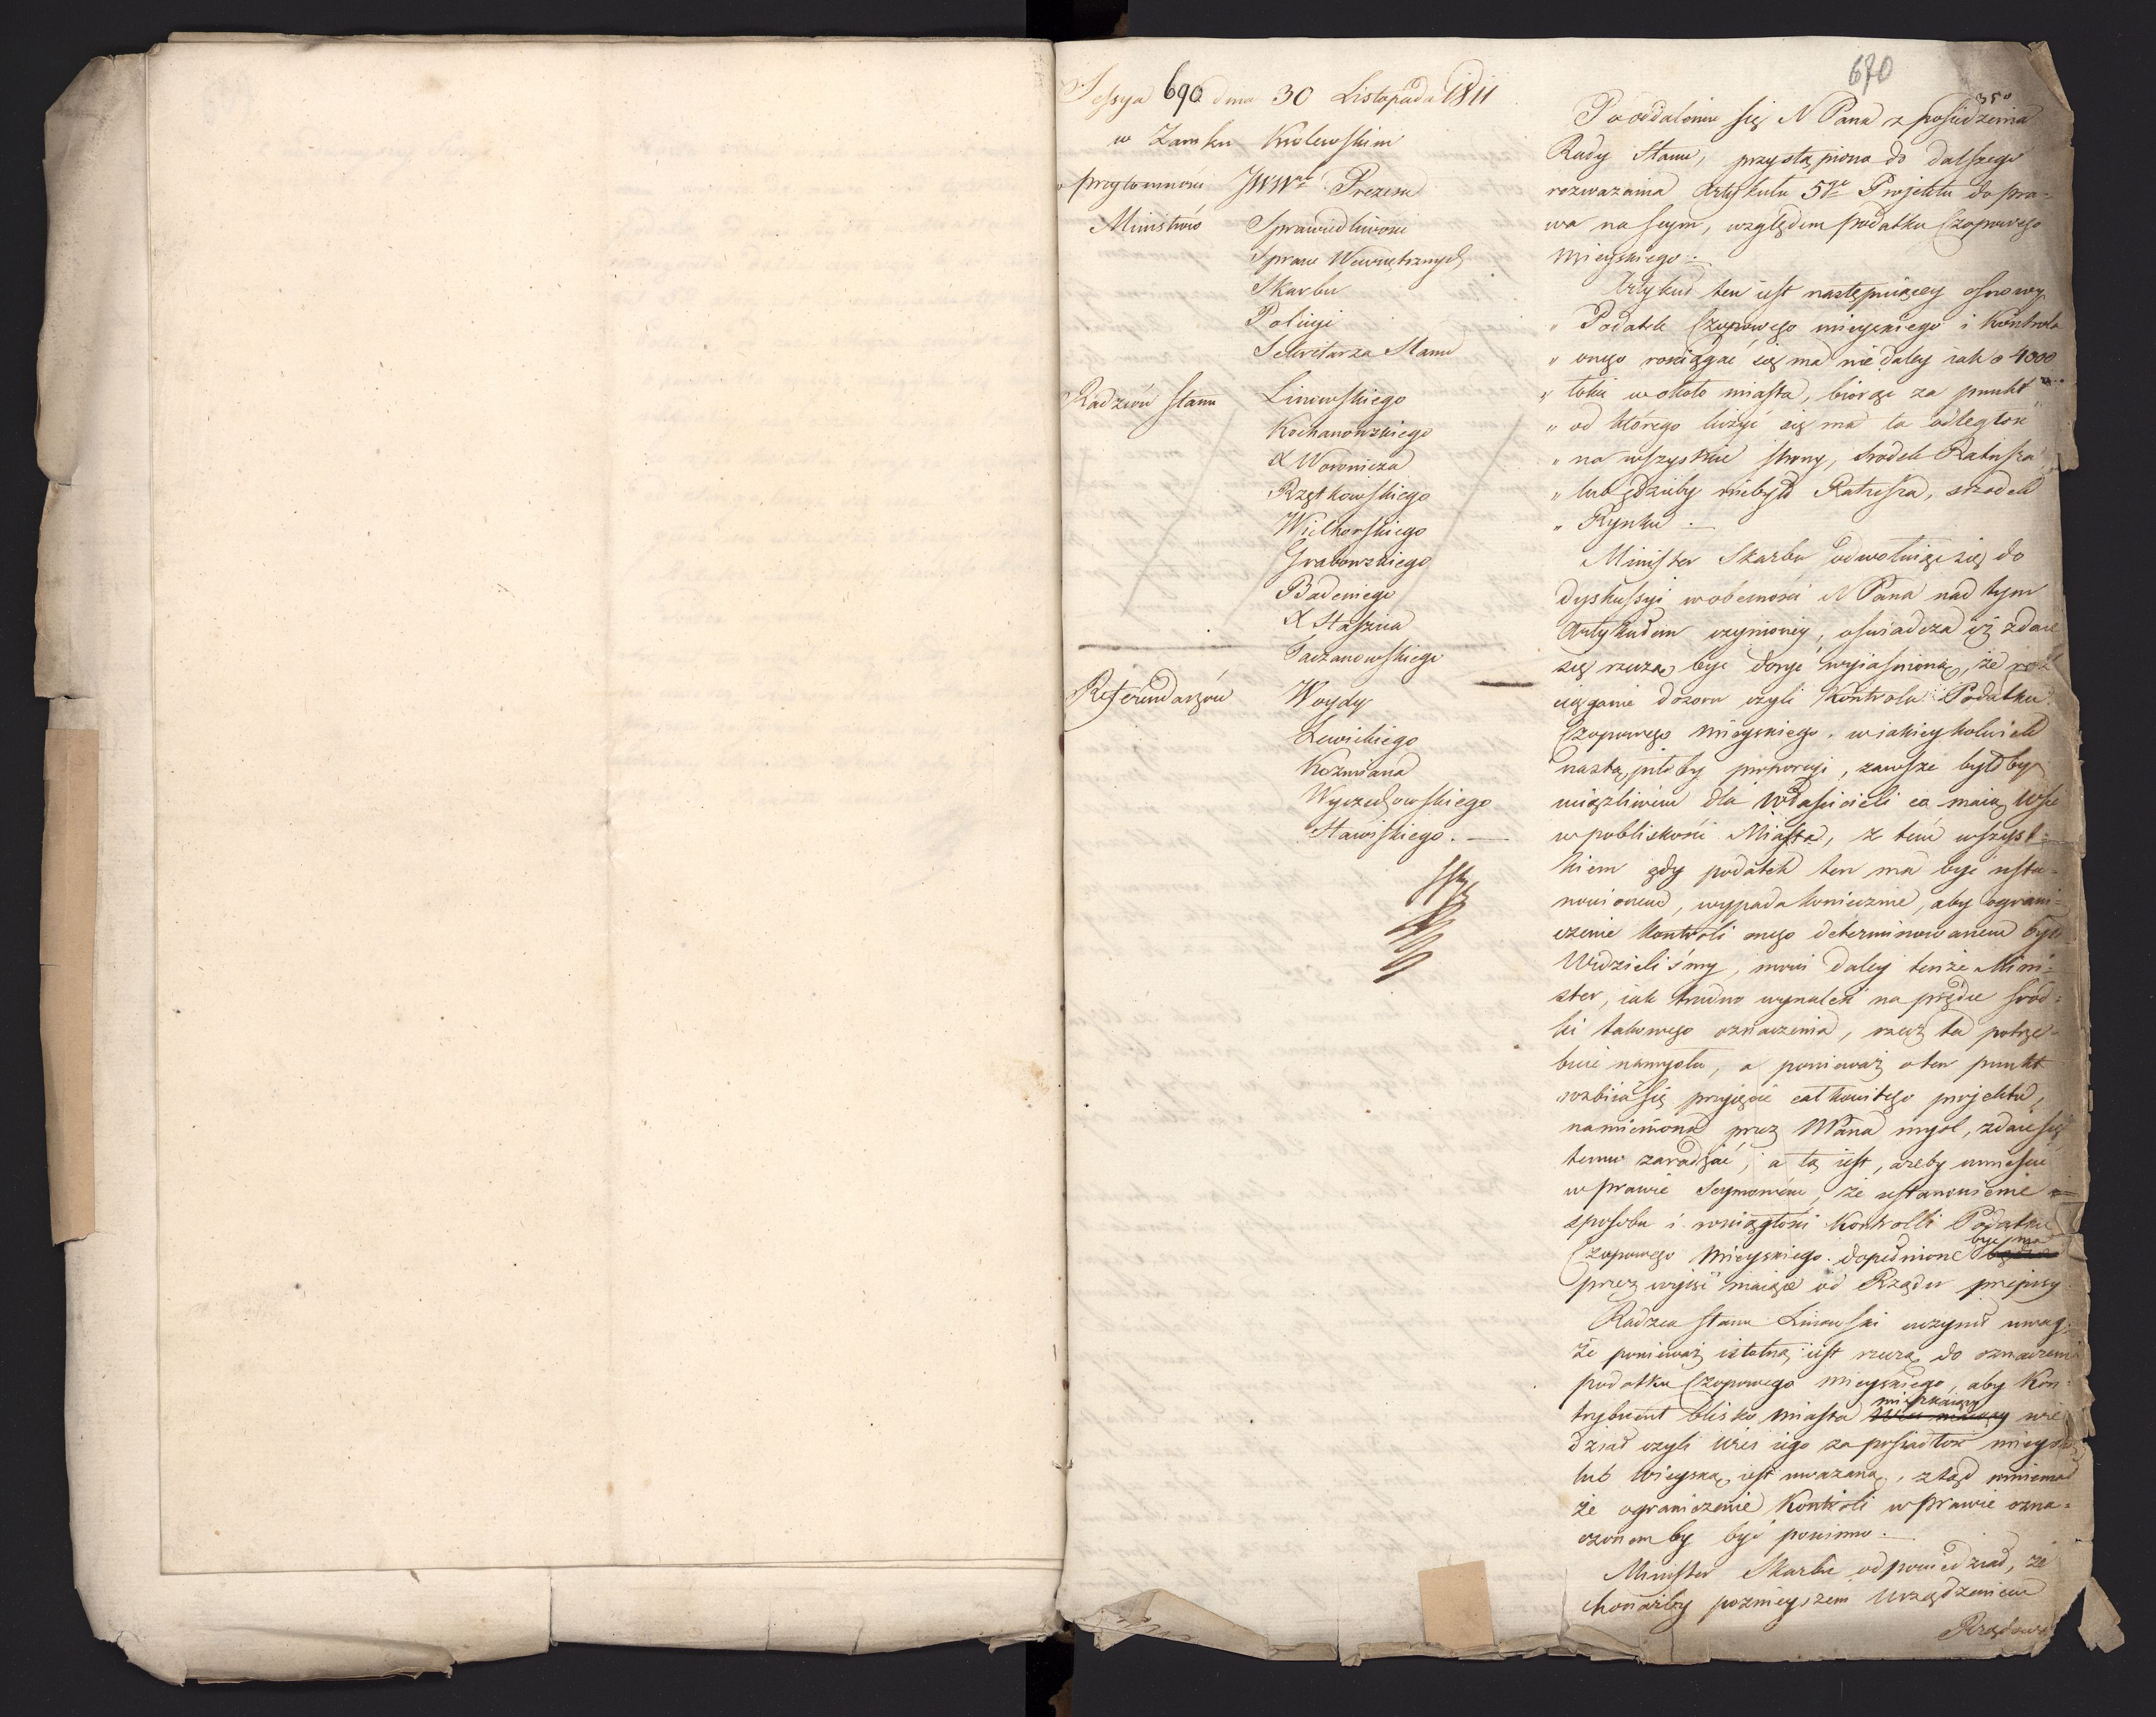 Sessya 690 dnia 30 Listopada 1811
w Zamku Krolewskim
w przytomnosci JWW Prezesa
Ministrów Sprawiedliwosci
Spraw Wewnętrznych
Skarbu
Policyi
Sekretarza Stanu
Radzców Stanu Linowskiego
Kochanowskiego
X Woronicza
Rzętkowskiego
Wielhorskiego
Grabowskiego
Badeniego
X Staszica
Taczanowskiego
Referendarzów Woydy
Lewickiego
Kozmiana
Wyczechowskiego
Stawiskiego. —
670
350
Po oddaleniu się N Pana z posiedzenia
Rady Stanu, przystąpiono do dalszego
rozważania Artykułu 5go Projektu do pra-
wa na seym, względem podatku Czopowego
Mieyskiego. —
Artykuł ten iest następuiącey osnowy
" Podatek Czopowego mieyskiego i Kontrola
" onego rosciągać się ma nie daley iak o 4000
" łokci w około miasta, biorąc za punkt
" od którego liczyć się ma ta odległosc
" na wszystkie strony, srodek Ratusza,
" lub gdzieby niebyło Ratusza, srzodek
" Rynku. —
Minister Skarbu odwołuiąc się do
dyskussyi w obecności N Pana nad tym
Artykułem czynioney, oswiadcza iż zdaie
się rzeczą być dosyć wyiasnioną, że roz
ciąganie dozoru czyli Kontroli Podatku
Czopowego Mieyskiego w iakieykolwiek
nastąpiłoby proporcyi, zawsze byłoby
uciążliwém dla własicicieli co maią Wsie
w pobliskości Miasta, z tém wszyst-
kiem gdy podatek ten ma być usta-
nowionem, wypada koniecznie, aby ograni-
czenie Kontroli onego determinowanem było
Widzieliśmy, mówi daley tenże Mini-
ster, iak trudno wynaleść na prędce środ-
ki takowego oznaczenia, rzecz ta potrze-
buie namysłu, a ponieważ o ten punkt
rozbiia się przyięcie całkowitego projektu,
namieniona przez NPana myśl, zdaie się
temu zaradzać, a tą iest, ażeby umieścić
w prawie Seymowém, że ustanowienie
sposobu i rosciągłości Kontrolli Podatku
być ma
Czopowego Mieyskiego dopełnione
przez wyiść maiące od Rządu przepisy
Radzca Stanu Linowski uczynił uwagę
że ponieważ istotną iest rzeczą do oznaczenia
podatku Czopowego mieyskiego, aby Kon-
mieszkaiący
trybuent blisko miasta wie
dział czyli wieś iego za posiadłość mieyską
lub wieyską iest uważaną, ztąd mniema
że ograniczenie Kontroli w prawie ozna-
czonem by być powinno. —
Minister Skarbu odpowiedział, że
chociażby poźnieyszem Urządzeniem
Rządowem